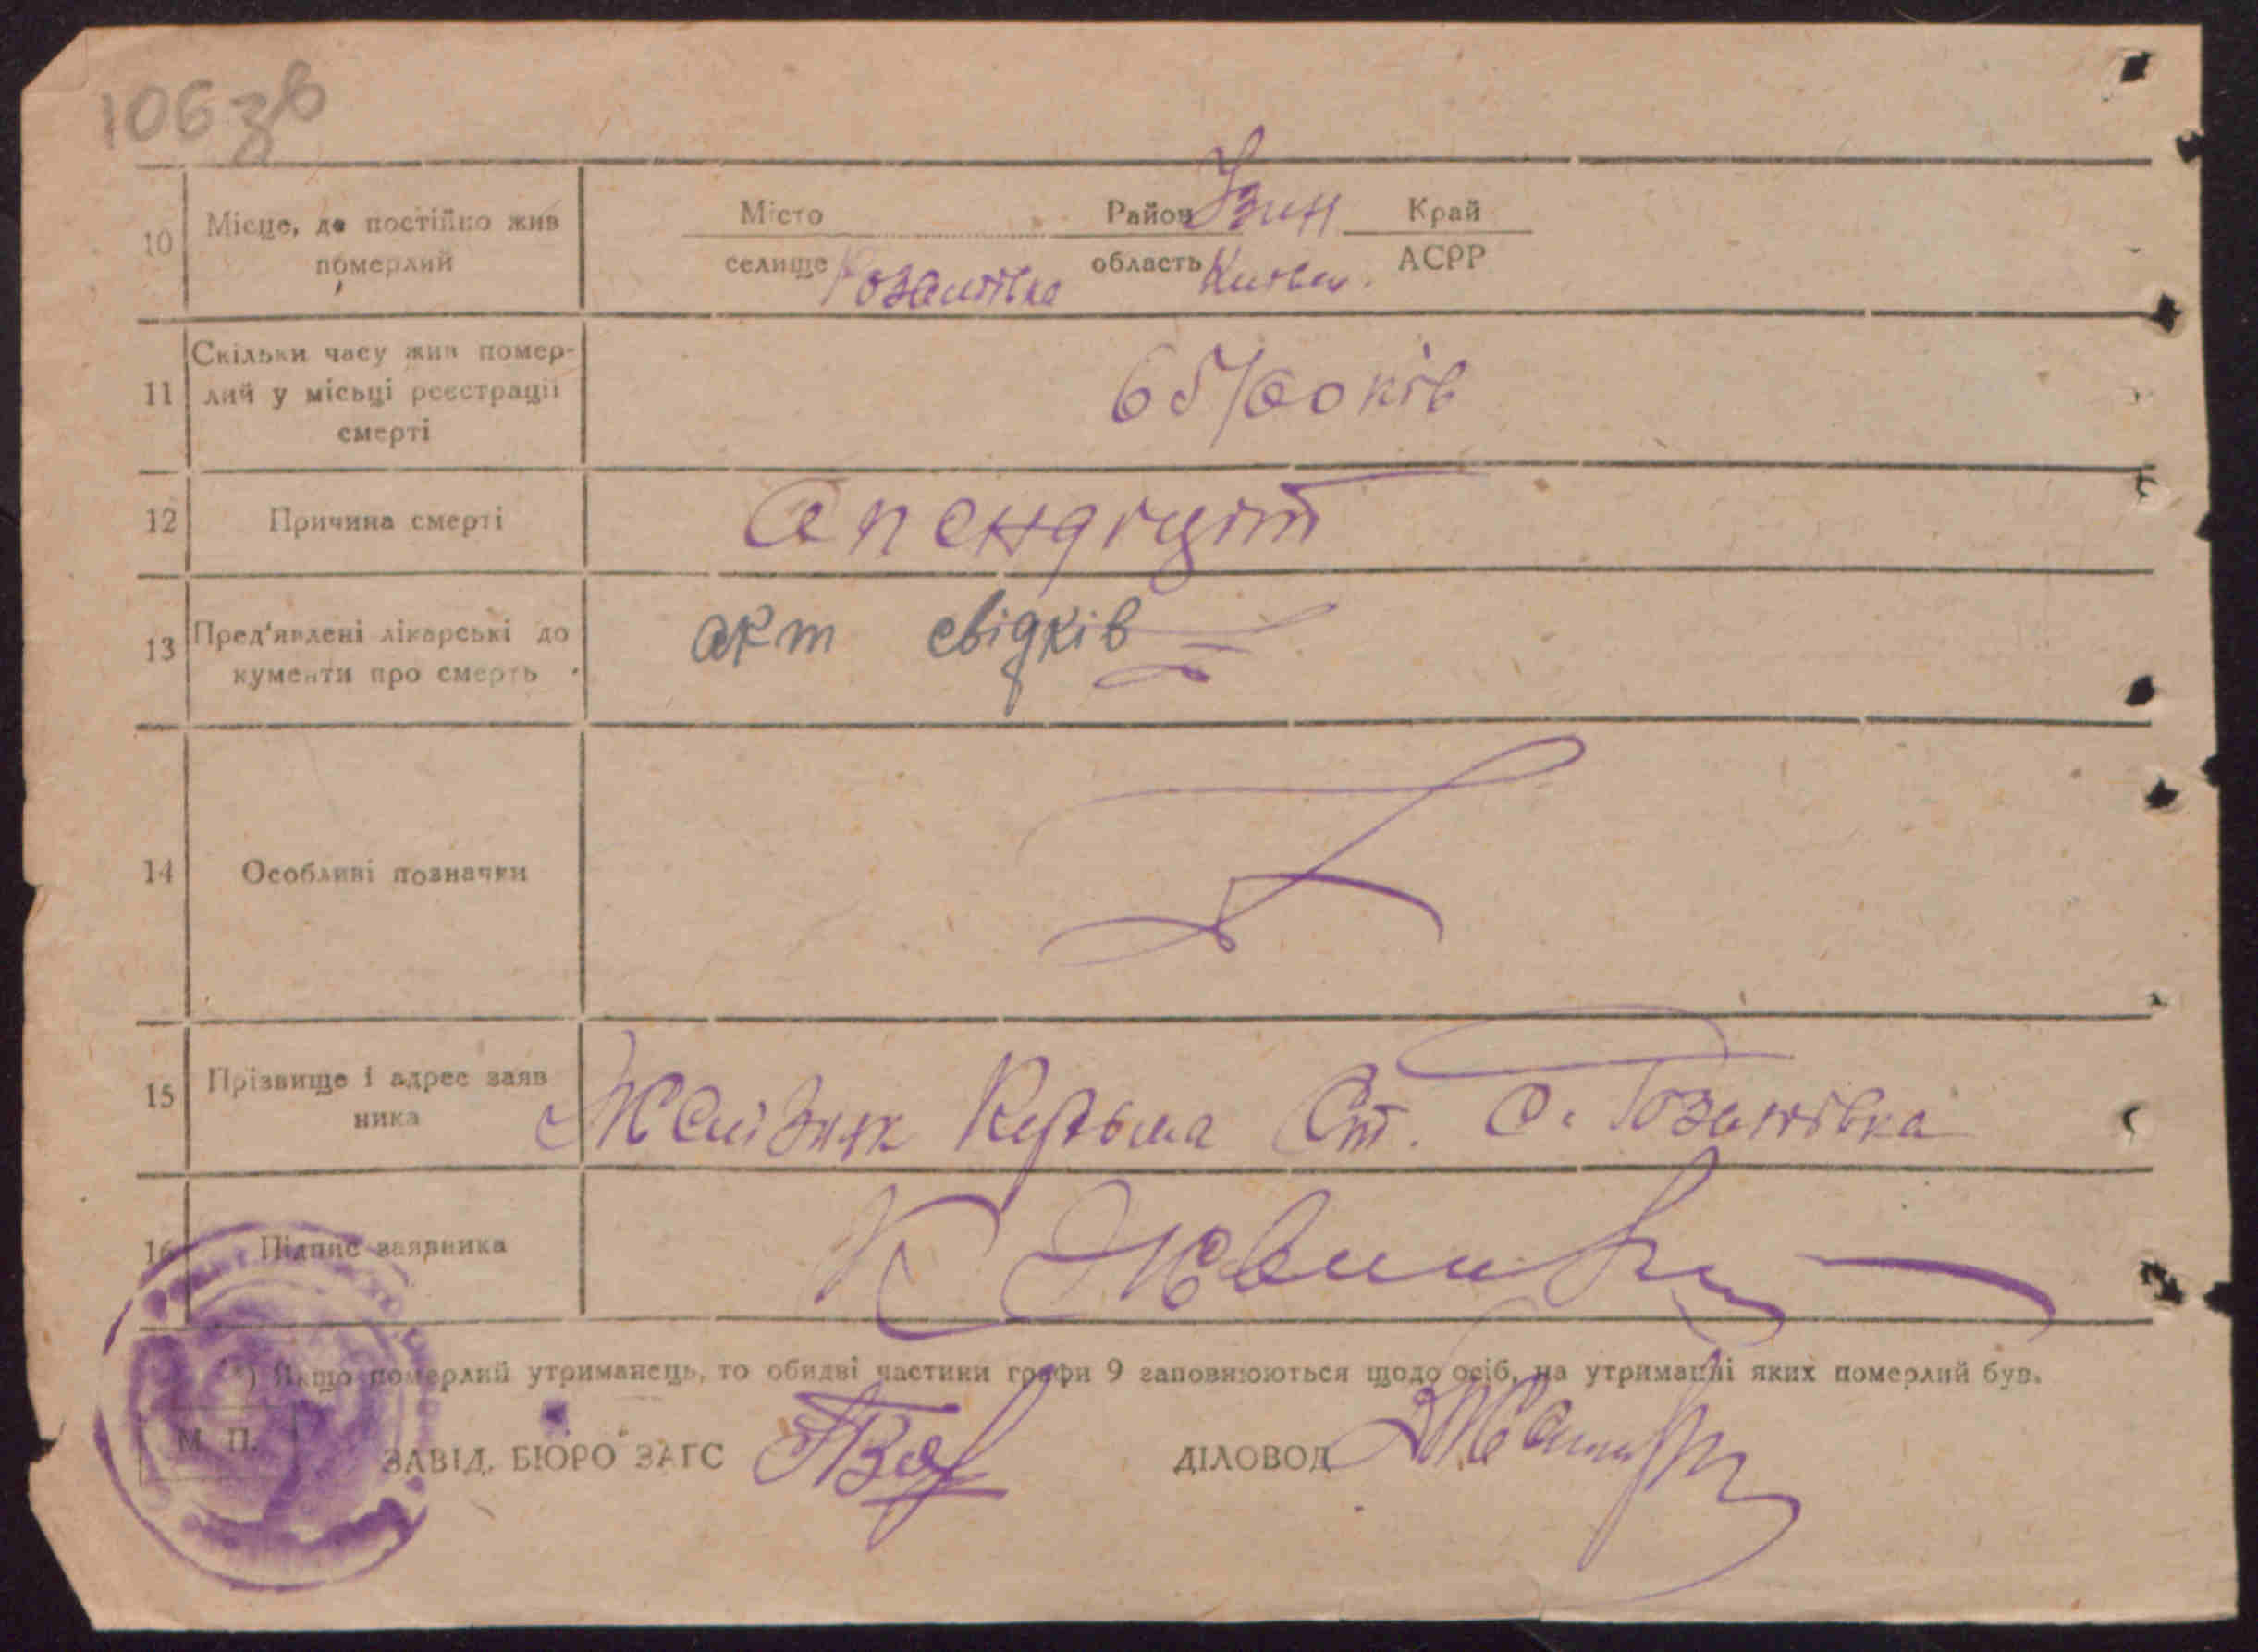 106 зв
10 Місце, де постійно жив померлий
Місто Район Узин Край
селище Розаліївка область Київськ. АСРР
11 Скільки часу жив помер-
лий у місьці реєстрації
смерті
65 років
12 Причина смерті апендіцит
13 Пред'явлені лікарські до
кументи про смерть
акт свідків
14 Особливі позначки
15 Прізвище і адрес заяв
ника
Желізняк Кузьма Ст. С.
16 Підпис заявника
*) Якщо померлий утриманець, то обидві частини графи 9 заповнюються щодо осіб, на утриманні яких померлий був.
М. П.
ЗАВІД. БЮРО ЗАГС ДІЛОВОД